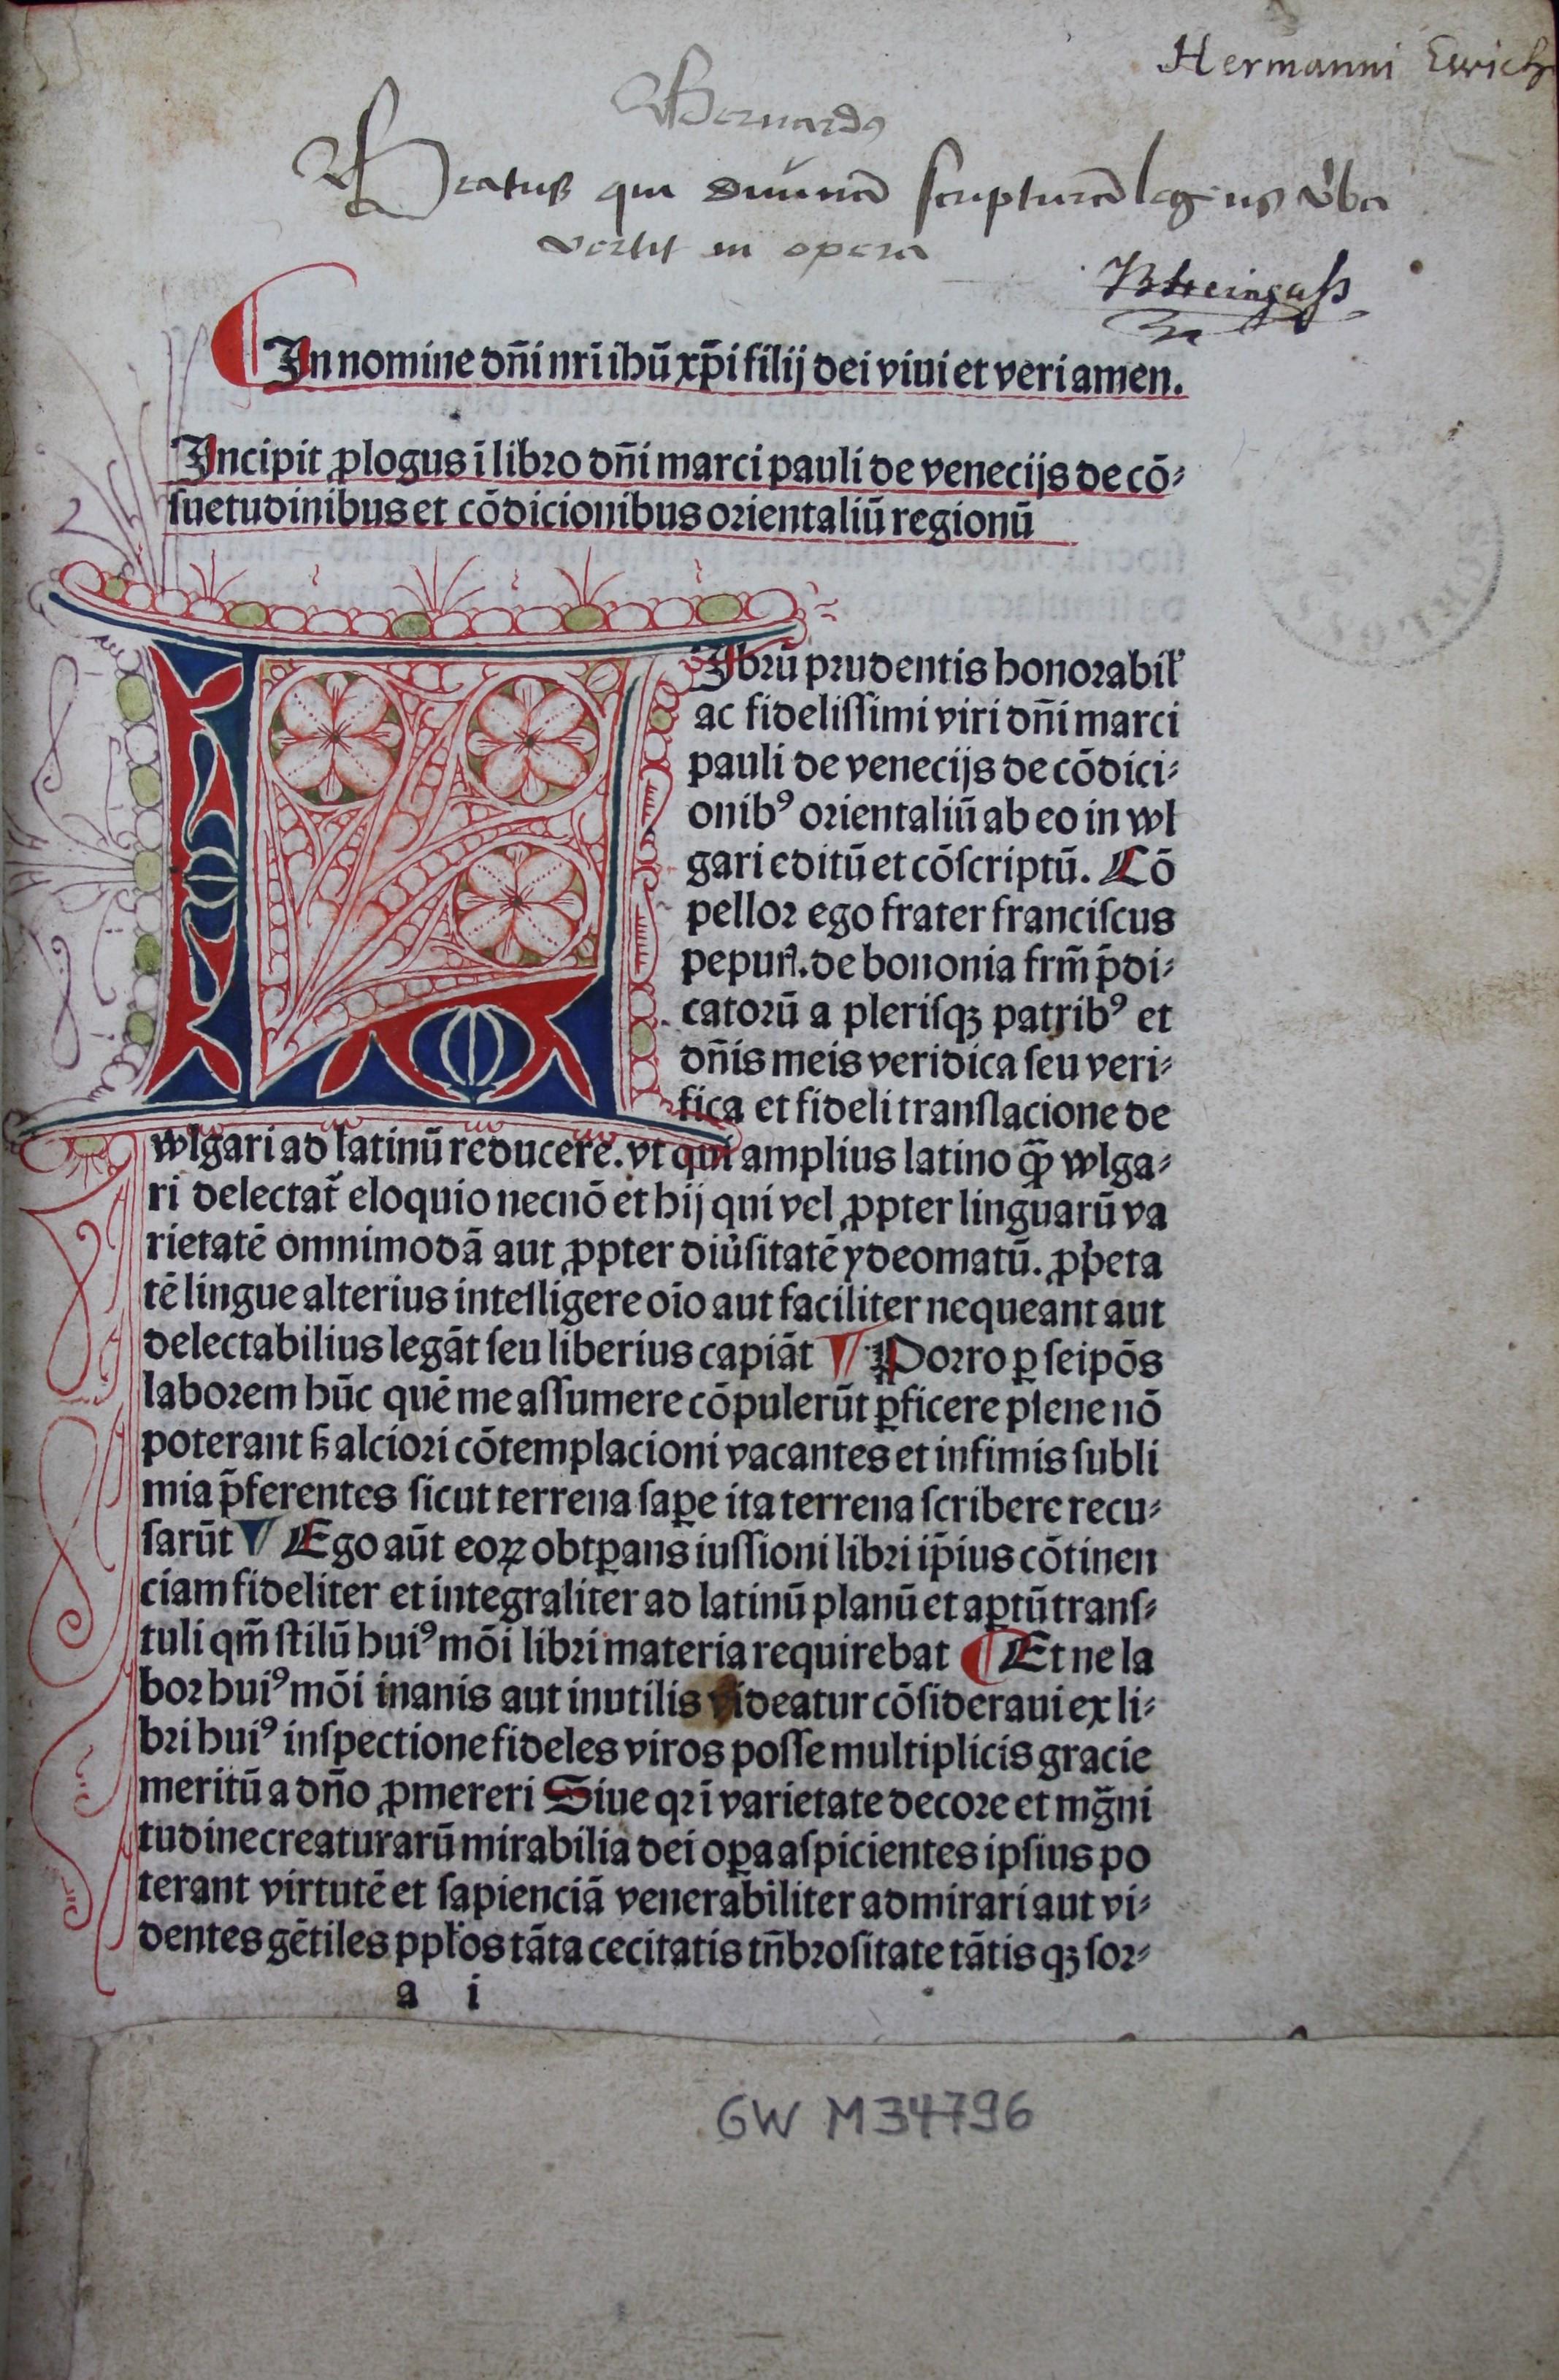 Hermanni Ewich
Bernardus
Beatus qui diuinā scripturā legens v̓ba
vertit in opera
In nomine dn̄i nr̄i ihū xp̄i filij dei viui et veri amen.
Incipit ꝓlogus ī libro dn̄i marci pauli de venecijs de cō⸗
ſuetudinibus et cōdicionibus orientaliū regionū
LIbrū prudentis honorabil̓
ac fideliſſimi viri dn̄i marci
pauli de venecijs de cōdici⸗
onibꝰ orientaliū ab eo in wl
gari editū et cōſcriptū. Cō
pellor ego frater franciſcus
pepur̃. de bononia frm̄ p̄di⸗
catorū a pleriſqꝫ patribꝰ et
dn̄is meis veridica ſeu veri⸗
fica et fideli tranſlacione de
wlgari ad latinū reducere. vt qui amplius latino qᷓꝫ wlga⸗
ri delectat̃ eloquio necnō et hij qui vel ꝓpter linguarū va
rietatē omnimodā aut ꝓpter diu̓ſitatē ydeomatū. ꝓp̓eta
tē lingue alterius intelligere oīo aut faciliter nequeant aut
delectabilius legāt ſeu liberius capiāt ¶ Porro ꝑ ſeipōs
laborem hūc quē me aſſumere cōpulerūt ꝑficere plene nō
poterant ſꝫ alciori cōtemplacioni vacantes et infimis ſubli
mia p̄ferentes ſicut terrena ſaꝑe ita terrena ſcribere recu⸗
ſarūt ¶ Ego aūt eoꝝ obtꝑans iuſſioni libri ip̄ius cōtinen
ciam fideliter et integraliter ad latinū planū et aꝑtū tranſ⸗
tuli qm̄ ſtilū huiꝰ mōi libri materia requirebat ¶ Et ne la
bor huiꝰ mōi inanis aut inutilis videatur cōſideraui ex li⸗
bri huiꝰ inſpectione fideles viros poſſe multiplicis gracie
meritū a dn̄o ꝓmereri Siue qꝛ ī varietate decore et mg̃ni
tudine creaturarū mirabilia dei oꝑa aſpicientes ipſius po
terant virtutē et ſapienciā venerabiliter admirari aut vi⸗
dentes gētiles ppl̓os tāta cecitatis tn̄broſitate tātis qꝫ ſor⸗
a i
GW M34796